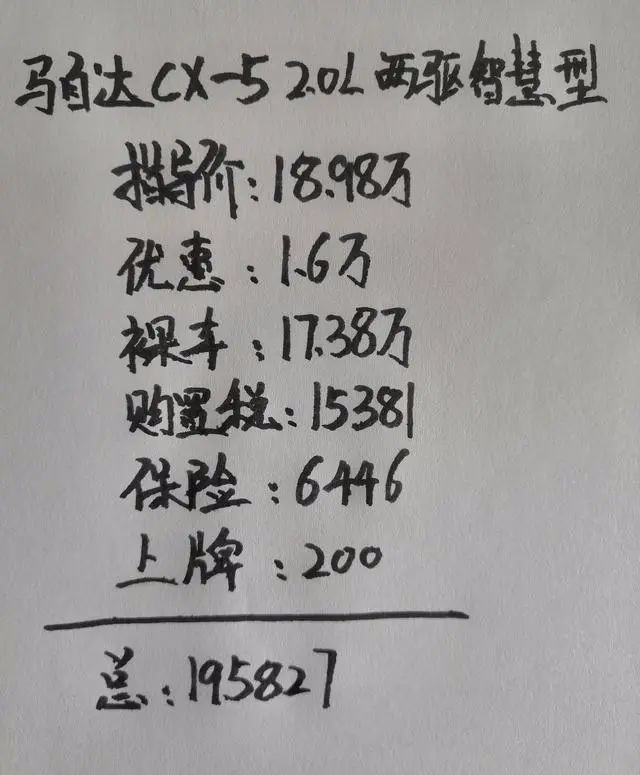 马自达CX-5 2.0L 两驱智慧型
指导价:18.98万
优惠:1.6万
裸车:17.38万
购置税:15381
保险:6446
上牌:200
总:195827